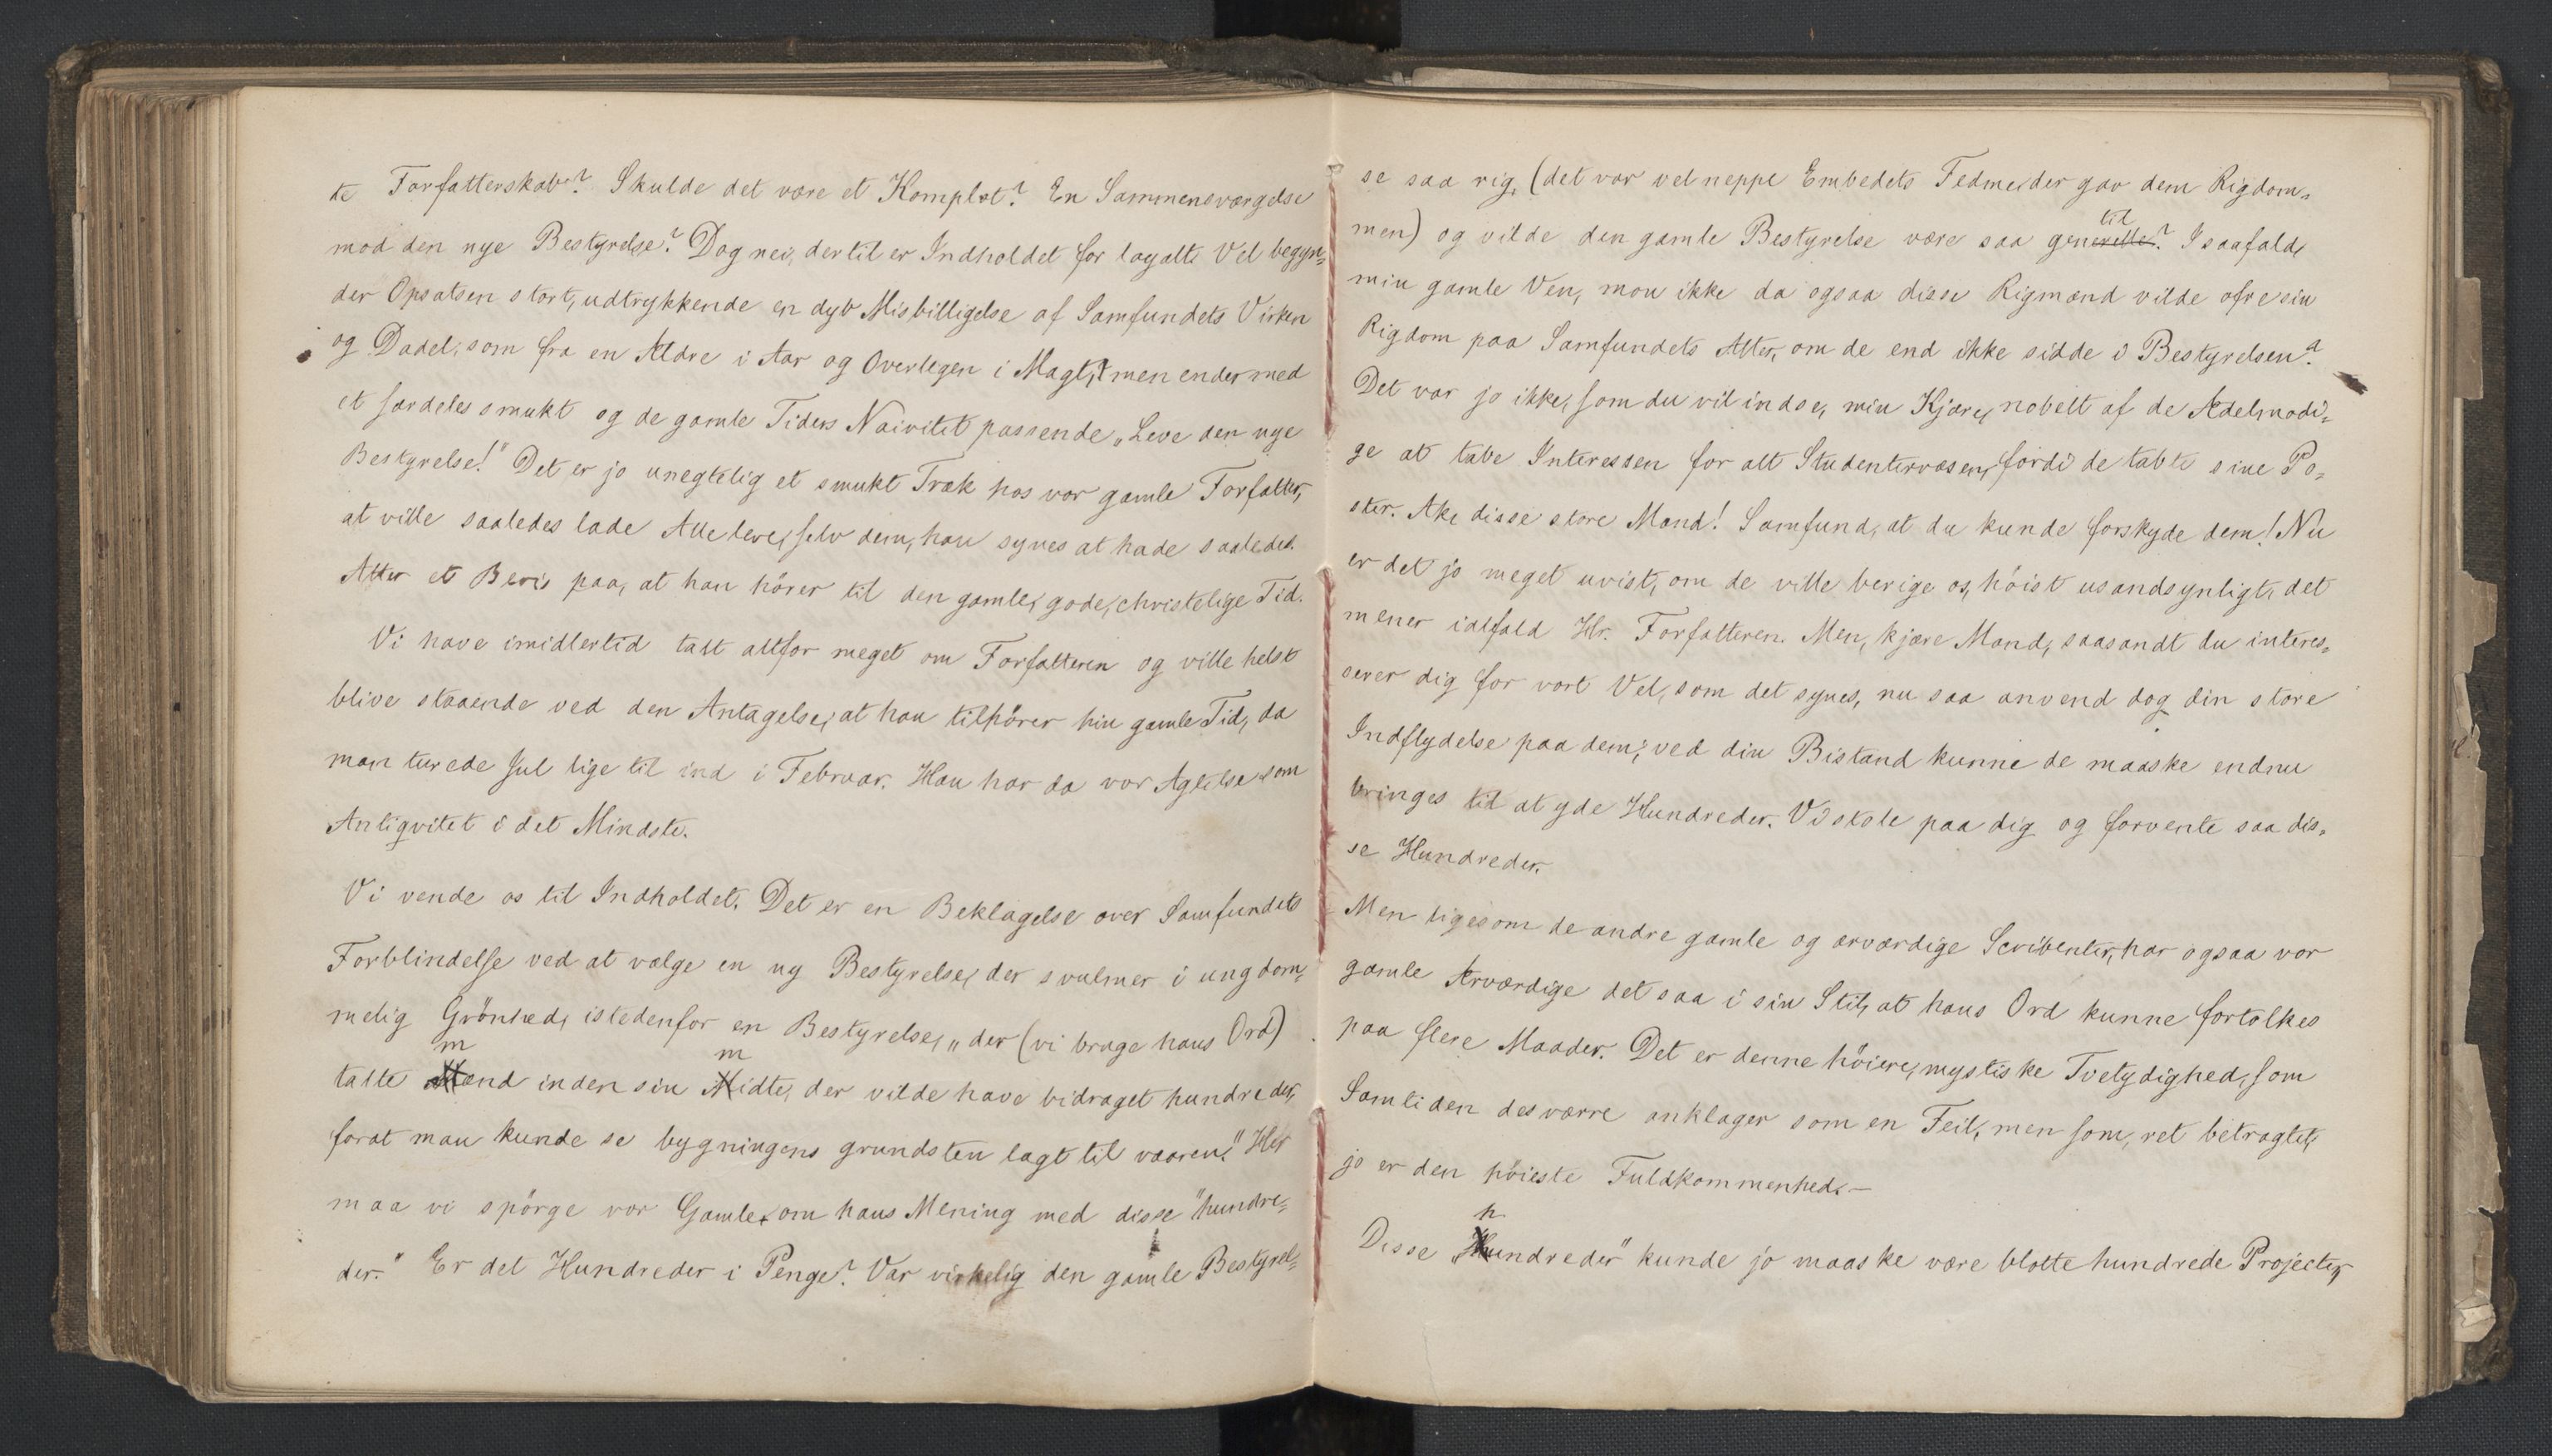 te Forfatterskab? Skulde det være et Komplot? En Sammensværgelse
mod den nye Bestyrelse? Dog nei, dertil er Indholdet for loyalt. Vel begyn-
der Opsatsen stort, udtrykkende en dyb Misbilligelse af Samfundets Virken
og Dadel, som fra en Ældre i Aar og Overlegen i Magt, men ender med
et særdeles smukt og de gamle Tiders Naivitet passende „Leve den nye
Bestyrelse!" Det er jo unegtelig et smukt Træk hos vor gamle Forfatter,
at ville saaledes lade Alle leve, selv dem, han synes at hade saaledes.
Atter et Bevis paa, at han hörer til den gamle, gode, christelige Tid.
Vi have imidlertid talt altfor meget om Forfatteren og ville helst
blive staaende ved den Antagelse, at han tilhörer hin gamle Tid, da
man turede Jul lige til ind i Februar. Han har da vor Agtelse som
Antiqvitet i det Mindste.
Vi vende os til Indholdet. Det er en Beklagelse over Samfundets
Forblindelse ved at vælge en ny Bestyrelse, der svulmer i ungdom-
melig Grönhed, istedenfor en Bestyrelse, „der (vi bruge hans Ord)
talte mænd inden sin midte, der vilde have bidraget hundreder,
forat man kunde se bygningens grundsten lagt til vaaren." Her
maa vi spörge vor Gamle, om hans Mening med disse "hundre-
der." Er det Hundreder i Penge? Var virkelig den gamle Bestyrel-
se saa rig, (det var vel neppe Embedets Fedme, der gav dem Rigdom-
men) og vilde den gamle Bestyrelse være saa gentil? I saafald,
min gamle Ven, mon ikke da ogsaa disse Rigmænd vilde ofre sin
Rigdom paa Samfundets Alter, om de end ikke sidde i Bestyrelsen?
Det var jo ikke, som du vil indse, min Kjære, nobelt af de Ædelmodi-
ge at tabe Interessen for alt Studentervæsen, fordi de tabte sine Po-
ster. Ak, disse store Mænd! Samfund, at du kunde forskyde dem! Nu
er det jo meget uvist, om de ville berige os, höist usandsynligt, det
mener ialfald Hr. Forfatteren. Men, kjære Mand, saasandt du interes-
serer dig for vort Vel, som det synes, nu saa anvend dog din store
Indflydelse paa dem; ved din Bistand kunne de maaske endnu
bringes til at yde Hundreder. Vi stole paa dig og forvente saa dis-
se Hundreder.
Men ligesom de andre gamle og ærværdige Scribenter, har ogsaa vor
gamle Ærværdige det saa i sin Stil, at hans Ord kunne fortolkes
paa flere Maader. Det er denne höiere, mystiske Tvetydighed, som
Samtiden desværre anklager som en Feil, men som, ret betragtet,
jo er den höieste Fuldkommenhed. —
Disse „hundreder" kunde jo maaske være blotte hundrede Projecter,